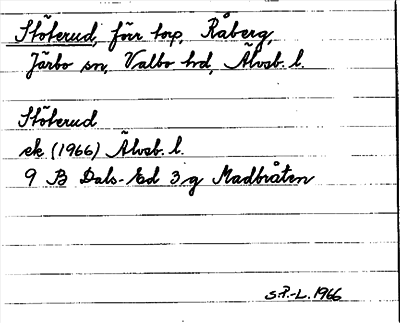 Stökerud, förr torp, Råberg,
Järbo sn, Valbo hd, Älvsb. l.
Stökerud
ek (1966) Älvsb. l.
9 B Dals-Ed 3 g Madbråten
S.P.-L. 1966